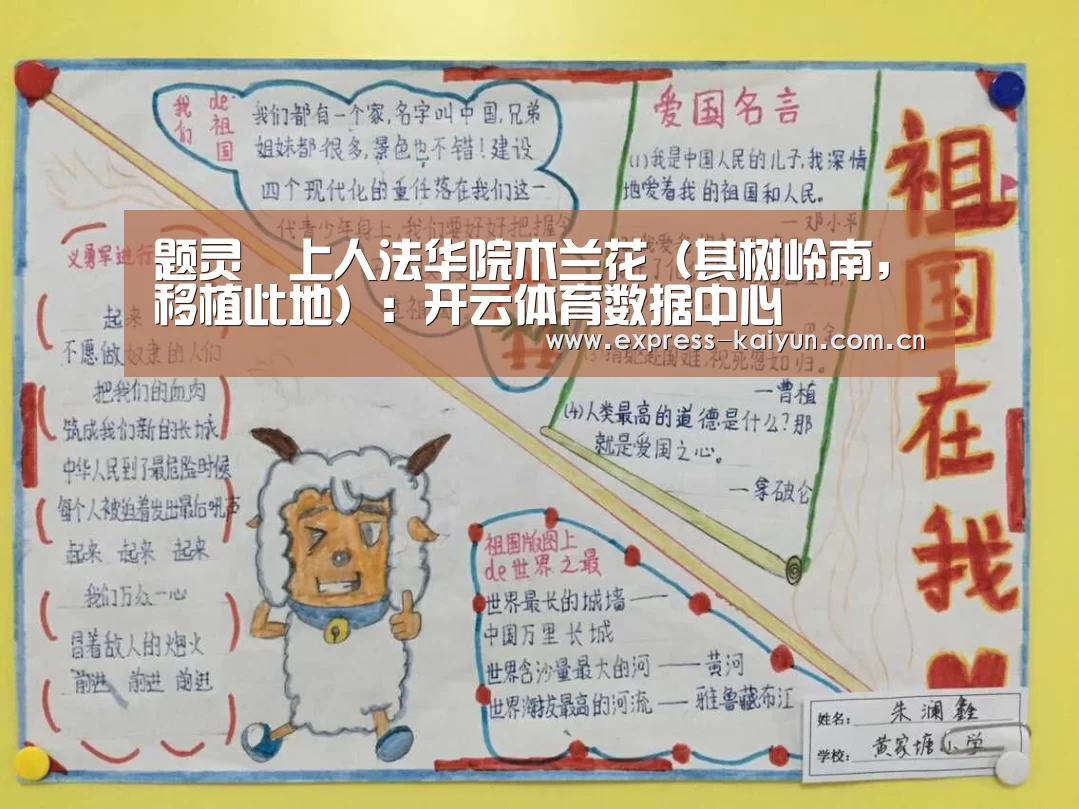 我们
de祖国
我们都有一个家,名字叫中国,兄弟
姐妹都很多,景色也不错!建设
四个现代化的重任落在我们这一
代青少年身上,我们要好好把握今
爱国名言
(1)我是中国人民的儿子,我深情
地爱着我的祖国和人民。
—邓小平
题灵 上人法华院木兰花（其树岭南，
移植此地）：开云体育数据中心
www.express-kaiyun.com.cn
—曹植
(4)人类最高的道德是什么?那
就是爱国之心。
—拿破仑
义勇军进行
起来
不愿做奴隶的人们
把我们的血肉
筑成我们新的长城
中华人民到了最危险时候
每个人被迫着发出最后吼声
起来 起来 起来
我们万众一心
冒着敌人的炮火
前进 前进 前进
祖国版图上
de世界之最
世界最长的城墙——
中国万里长城
世界含沙量最大的河——黄河
世界海拔最高的河流——雅鲁藏布江
祖国在我
姓名: 朱澜鑫
学校: 黄家塘小学